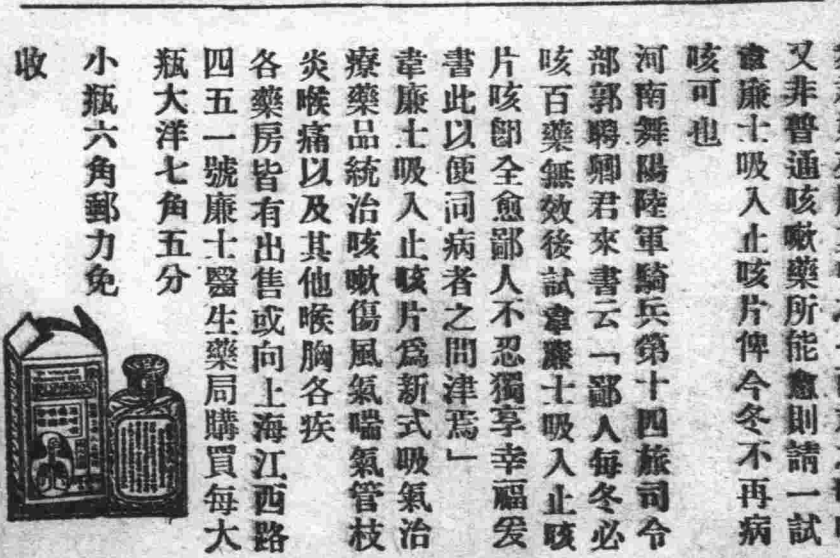 又非普通咳嗽藥所能愈則請一試
韋廉士吸入止咳片俾今冬不再病
咳可也
河南舞陽陸軍騎兵第十四旅司令
部郭聘卿君來書云「鄙人每冬必
咳百藥無效後試韋廉士吸入止咳
片咳卽全愈鄙人不忍獨享幸福爰
書此以便同病者之問津焉」
韋廉士吸入止咳片爲新式吸氣治
療藥品統治咳嗽傷風氣喘氣管枝
炎喉痛以及其他喉胸各疾
各藥房皆有出售或向上海江西路
四五一號廉士醫生藥局購買每大
瓶大洋七角五分
小瓶六角郵力免
收